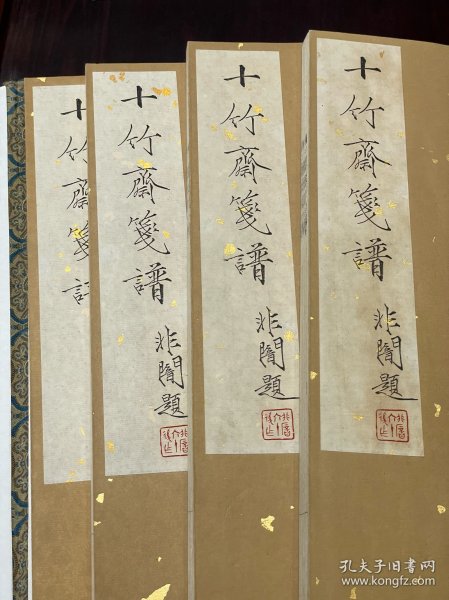 十竹齋箋
十竹齋箋譜
非闇題
十竹齋箋譜
非闇題
十竹齋箋譜
非闇題
孔夫子旧书网
www.kongfz.com